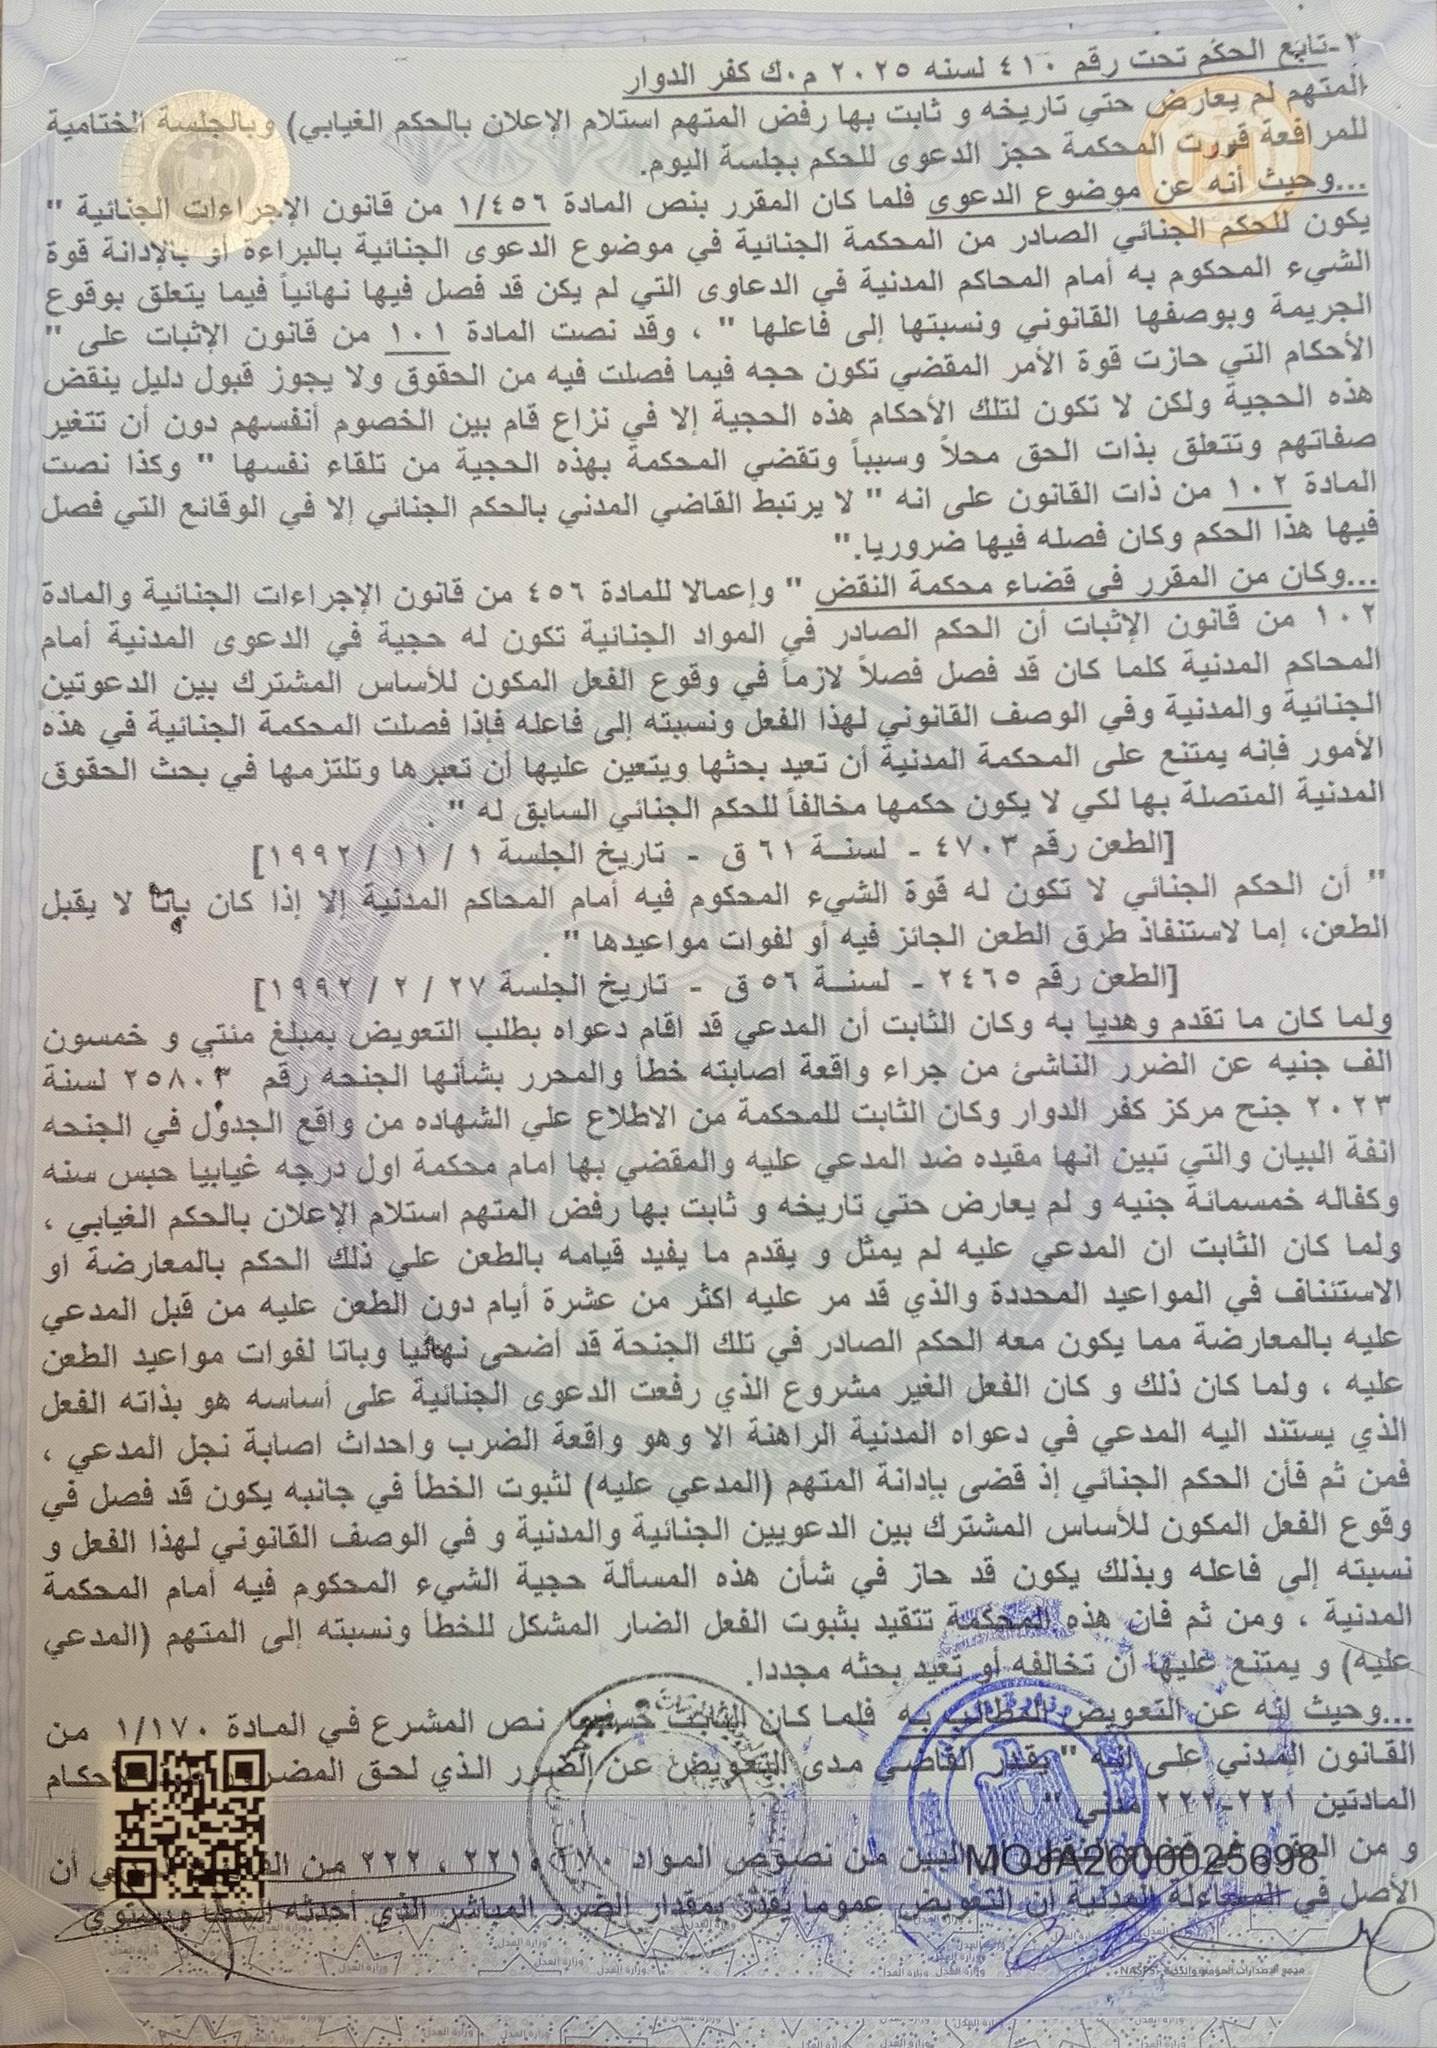 ٣-تابع الحكم تحت رقم ٤١٠ لسنه ٢٠٢٥ م.ك كفر الدوار
المتهم لم يعارض حتي تاريخه و ثابت بها رفض المتهم استلام الإعلان بالحكم الغيابي) وبالجلسة الختامية
للمرافعة قررت المحكمة حجز الدعوى للحكم بجلسة اليوم.
...وحيث أنه عن موضوع الدعوى فلما كان المقرر بنص المادة ١/٤٥٦ من قانون الإجراءات الجنائية "
يكون للحكم الجنائي الصادر من المحكمة الجنائية في موضوع الدعوى الجنائية بالبراءة أو بالإدانة قوة
الشيء المحكوم به أمام المحاكم المدنية في الدعاوى التي لم يكن قد فصل فيها نهائياً فيما يتعلق بوقوع
الجريمة وبوصفها القانوني ونسبتها إلى فاعلها " ، وقد نصت المادة ١٠١ من قانون الإثبات على "
الأحكام التي حازت قوة الأمر المقضي تكون حجه فيما فصلت فيه من الحقوق ولا يجوز قبول دليل ينقض
هذه الحجية ولكن لا تكون لتلك الأحكام هذه الحجية إلا في نزاع قام بين الخصوم أنفسهم دون أن تتغير
صفاتهم وتتعلق بذات الحق محلاً وسبباً وتقضي المحكمة بهذه الحجية من تلقاء نفسها " وكذا نصت
المادة ١٠٢ من ذات القانون على انه " لا يرتبط القاضي المدني بالحكم الجنائي إلا في الوقائع التي فصل
فيها هذا الحكم وكان فصله فيها ضروريا."
...وكان من المقرر في قضاء محكمة النقض " وإعمالا للمادة ٤٥٦ من قانون الإجراءات الجنائية والمادة
١٠٢ من قانون الإثبات أن الحكم الصادر في المواد الجنائية تكون له حجية في الدعوى المدنية أمام
المحاكم المدنية كلما كان قد فصل فصلاً لازماً في وقوع الفعل المكون للأساس المشترك بين الدعوتين
الجنائية والمدنية وفي الوصف القانوني لهذا الفعل ونسبته إلى فاعله فإذا فصلت المحكمة الجنائية في هذه
الأمور فإنه يمتنع على المحكمة المدنية أن تعيد بحثها ويتعين عليها أن تعبرها وتلتزمها في بحث الحقوق
المدنية المتصلة بها لكي لا يكون حكمها مخالفاً للحكم الجنائي السابق له " .
[الطعن رقم ٤٧٠٣ - لسنــة ٦١ ق - تاريخ الجلسة ١ / ١١ / ١٩٩٢]
" أن الحكم الجنائي لا تكون له قوة الشيء المحكوم فيه أمام المحاكم المدنية إلا إذا كان باتا لا يقبل
الطعن، إما لاستنفاذ طرق الطعن الجائز فيه أو لفوات مواعيدها " .
[الطعن رقم ٢٤٦٥ - لسنــة ٥٦ ق - تاريخ الجلسة ٢٧ / ٢ / ١٩٩٢]
ولما كان ما تقدم وهديا به وكان الثابت أن المدعي قد اقام دعواه بطلب التعويض بمبلغ مئتي و خمسون
الف جنيه عن الضرر الناشئ من جراء واقعة اصابته خطأ والمحرر بشأنها الجنحه رقم ٢٥٨٠٣ لسنة
٢٠٢٣ جنح مركز كفر الدوار وكان الثابت للمحكمة من الاطلاع علي الشهاده من واقع الجدول في الجنحه
انفة البيان والتي تبين انها مقيده ضد المدعي عليه والمقضي بها امام محكمة اول درجه غيابيا حبس سنه
وكفاله خمسمائة جنيه و لم يعارض حتي تاريخه و ثابت بها رفض المتهم استلام الإعلان بالحكم الغيابي ،
ولما كان الثابت ان المدعي عليه لم يمثل و يقدم ما يفيد قيامه بالطعن علي ذلك الحكم بالمعارضة او
الاستئناف في المواعيد المحددة والذي قد مر عليه اكثر من عشرة أيام دون الطعن عليه من قبل المدعي
عليه بالمعارضة مما يكون معه الحكم الصادر في تلك الجنحة قد أضحى نهائيا وباتا لفوات مواعيد الطعن
عليه ، ولما كان ذلك و كان الفعل الغير مشروع الذي رفعت الدعوى الجنائية على أساسه هو بذاته الفعل
الذي يستند اليه المدعي في دعواه المدنية الراهنة الا وهو واقعة الضرب واحداث اصابة نجل المدعي ،
فمن ثم فأن الحكم الجنائي إذ قضى بإدانة المتهم (المدعي عليه) لثبوت الخطأ في جانبه يكون قد فصل في
وقوع الفعل المكون للأساس المشترك بين الدعويين الجنائية والمدنية و في الوصف القانوني لهذا الفعل و
نسبته إلى فاعله وبذلك يكون قد حاز في شأن هذه المسألة حجية الشيء المحكوم فيه أمام المحكمة
المدنية ، ومن ثم فان هذه المحكمة تتقيد بثبوت الفعل الضار المشكل للخطأ ونسبته إلى المتهم (المدعي
عليه) و يمتنع عليها أن تخالفه أو تعيد بحثه مجددا.
...وحيث إنه عن التعويض المطالب به فلما كان الثابت حسبما نص المشرع في المادة ١/١٧٠ من
القانون المدني على انه " يقدر القاضي مدى التعويض عن الضرر الذي لحق المضرور احكام
المادتين ٢٢١-٢٢٢ مدني "
و من المقرر البين من نصوص المواد ١٧٠ ، ٢٢١ ، ٢٢٢ من أن
MOJA2600025698
الأصل في المساءلة المدنية أن التعويض عموما يقدر بمقدار الضرر المباشر الذي أحدثه الخطأ ويستوي
مجمع الإصدارات المؤمنة والذكية NASPS